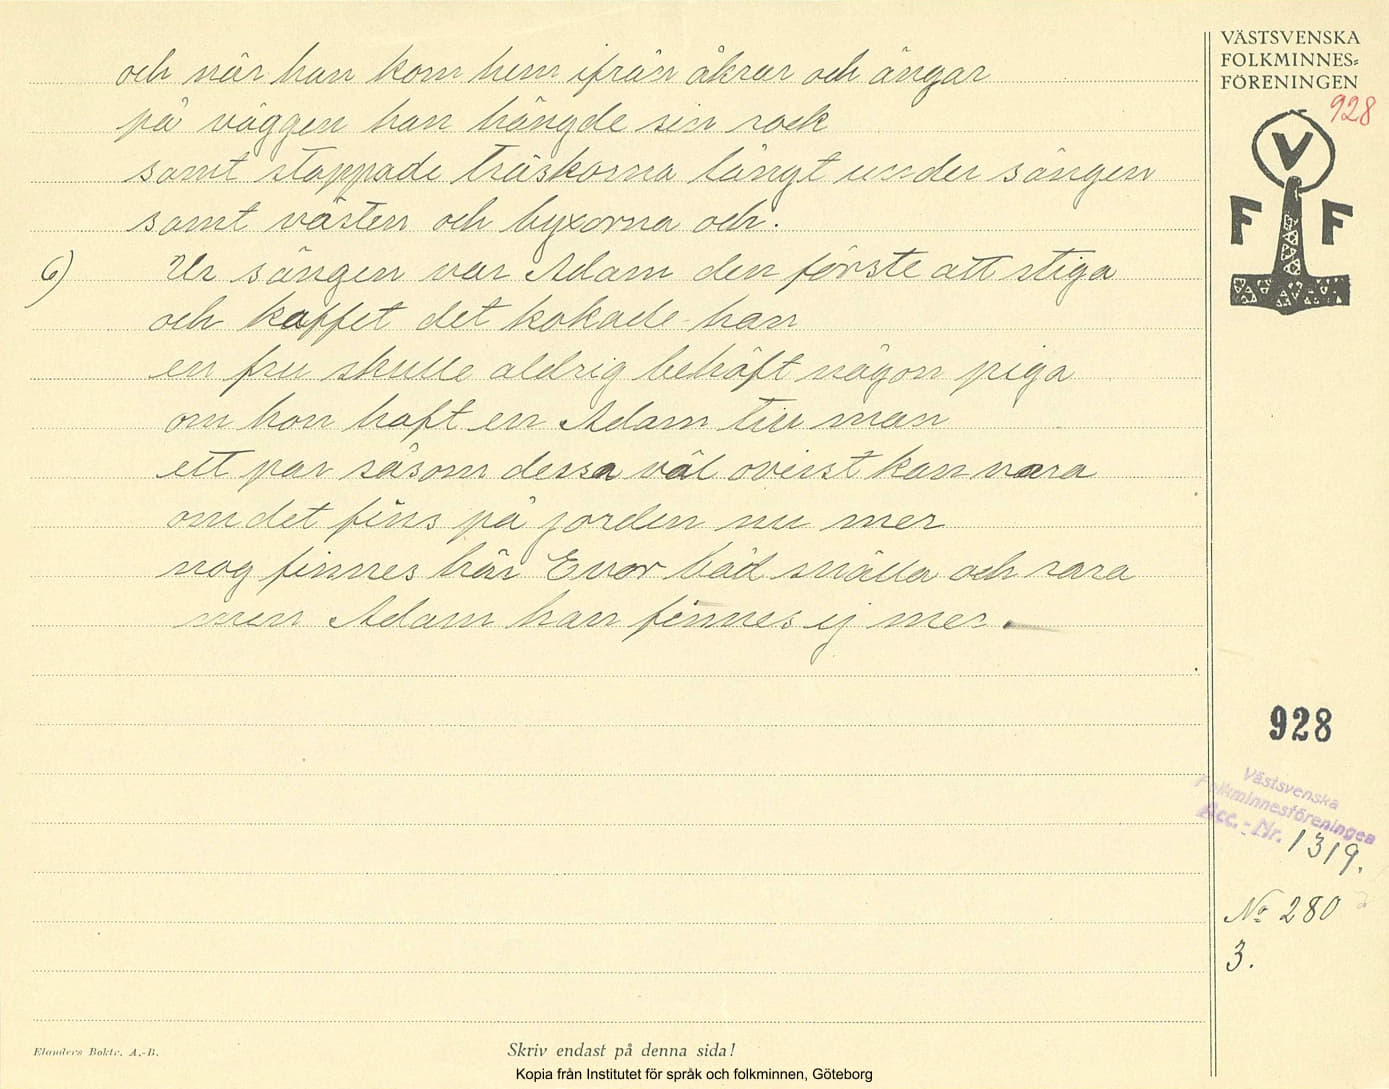 och när han kom hem ifrån åkrar och ängar
på väggen han hängde sin rock
samt stoppade träskorna långt under sängen
samt västen och byxorna och.
6) Ur sängen var Adam den förste att stiga
och kaffet det kokade han
en fru skulle aldrig behöft någon piga
om hon haft en Adam till man
ett par såsom dessa väl ovisst kan vara
om det fins på jorden nu mer
nog finnes här Evor båd snälla och rara
men Adam han finnes ej mer.
VÄSTSVENSKA
FOLKMINNES=
FÖRENINGEN
928
V
F F
928
Västsvenska
Folkminnesföreningen
Acc.-Nr. 1319.
No 280
3.
Elanders Boktr. A.-B.
Skriv endast på denna sida!
Kopia från Institutet för språk och folkminnen, Göteborg